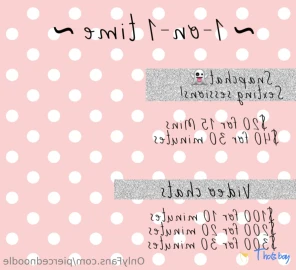 ~ 1-on-1 time ~
Snapchat 👻
Sexting sessions!
$20 for 15 Mins
$40 for 30 minutes
Video chats
$100 for 10 minutes
$200 for 20 minutes
$300 for 30 minutes
Thotsbay
OnlyFans.com/piercednoodle